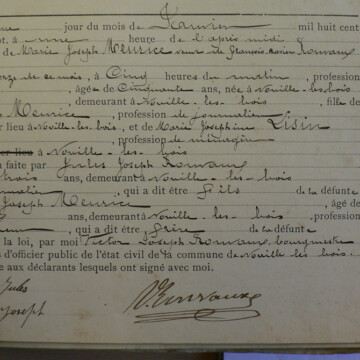 jour du mois de Janvier mil huit cent
à une heure de l'après midi
de Marie Joseph Meurice veuve de François Xavier Romvaux
de ce mois, à Cinq heures du matin, profession
, âgée de Cinquante ans, née à Nouille-les-bois
, demeurant à Nouille-les-bois, fille de
Meurice, profession de journalier
lieu à Nouille-les-bois, et de Marie Joséphine Lisin
, profession de ménagère
lieu à Nouille-les-bois
faite par Jules Joseph Romvaux
trois ans, demeurant à Nouille-les-bois
, qui a dit être Fils de la défunte
Joseph Meurice , âgé de
ans, demeurant à Nouille-les-bois, profession
, qui a dit être frère de la défunte
la loi, par moi Victor Joseph Romvaux, bourgmestre
d'officier public de l'état civil de la commune de Nouille les bois.
aux déclarants lesquels ont signé avec moi.
Jules
Joseph